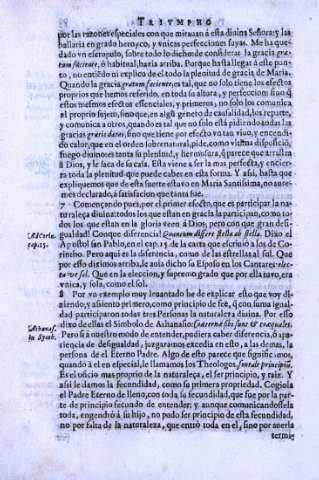 TRIVMPHO
por las razones especiales con que mirauan á esta diuina Señora; y las
hallaria en grado heroyco, y vnicas perfecciones suyas. Me ha que-
dado vn escrupulo, sobre todo lo dicho de considerar la gracia gra-
tum faciente, ò habitual, hazia arriba. Porque hasta llegar á este pun-
to, no entiẽdo ni explico de el todo la plenitud de gracia de Maria.
Quando la gracia gratum faciente, es tal, que no solo tiene los efectos
proprios que hemos referido, en toda su altura, y perfeccion: sino q̃
estos mesmos efectos essenciales, y primeros, no solo los comunica
al proprio sujeto, sino que, en algũ genero de causalidad, los reparte,
y comunica à otros; quando es tal que no solo está pidiendo todas las
gracias gratis datas, sino que tiene por efecto vn tan viuo, y encendi-
do calor, que en el orden sobrenatural, pide, como vltima disposiciõ,
fuego diuino: es tanta su plenitud, y hermosura, q̃ parece que arrastra
à Dios, y le saca de sa casa. Esta viene à ser la mas perfecta, y encier-
ra toda la plenitud que puede caber en esta forma. Y assi, hasta que
expliquemos que de esta suerte estuuo en Maria Santissima, no aure-
mos declarado, à satisfacion que tanta fue.
7 Començando pues, por el primer efecto, que es participar la na-
turaleza diuina: todos los que estan en gracia la participan, como to-
dos los que estan en la gloria veen à Dios; pero con que gran de-
sigualdad! Conque diferencia! Quantum differt stella ab stella. Dixo el
Apostol san Pablo, en el cap. 15 de la carta que escriuió à los de Co-
rintho. Pero aqui es la diferencia, como de las estrellas al sol. Que
por esso diximos arriba, le auia dicho su Esposo en los Cantares: elec-
ta vt sol. Que en la eleccion, y supremo grado que por ella tuuo, era
vnica, y sola, como el sol.
8 Por vn exemplo muy leuantado he de explicar esto que voy di-
ziendo; y assiento primero, como principio de fee, q̃ con suma igual-
dad participaron todas tres Personas la naturaleza diuina. Por esso
dixo de ellas el Simbolo de Athanasio: Coæternæ sibi sunt & coæquales.
Pero si á nuestro modo de entender, pudiera caber diferencia, ò apa-
riencia de desigualdad, juzgaramos excedia en esto, a las demas, la
persona de el Eterno Padre. Algo de esto parece que significamos,
quando à el en especial, le llamamos los Theologos, fons de principio.
Es el oficio mas proprio de la naturaleça, el ser principio, y raiz. Y
assi le damos la fecundidad, como su primera propriedad. Cogiola
el Padre Eterno de lleno, con toda su fecundidad, que fue por la par-
te de principio fecundo de entender; y aunque comunicandosela
toda, engendró à su hijo, no pudo ser principio de esta fecundidad,
no por falta de la naturaleza, que entró toda en el, sino por auerla
termi-
Ad Corin.
cap. 15.
Athanas.
in Symb.